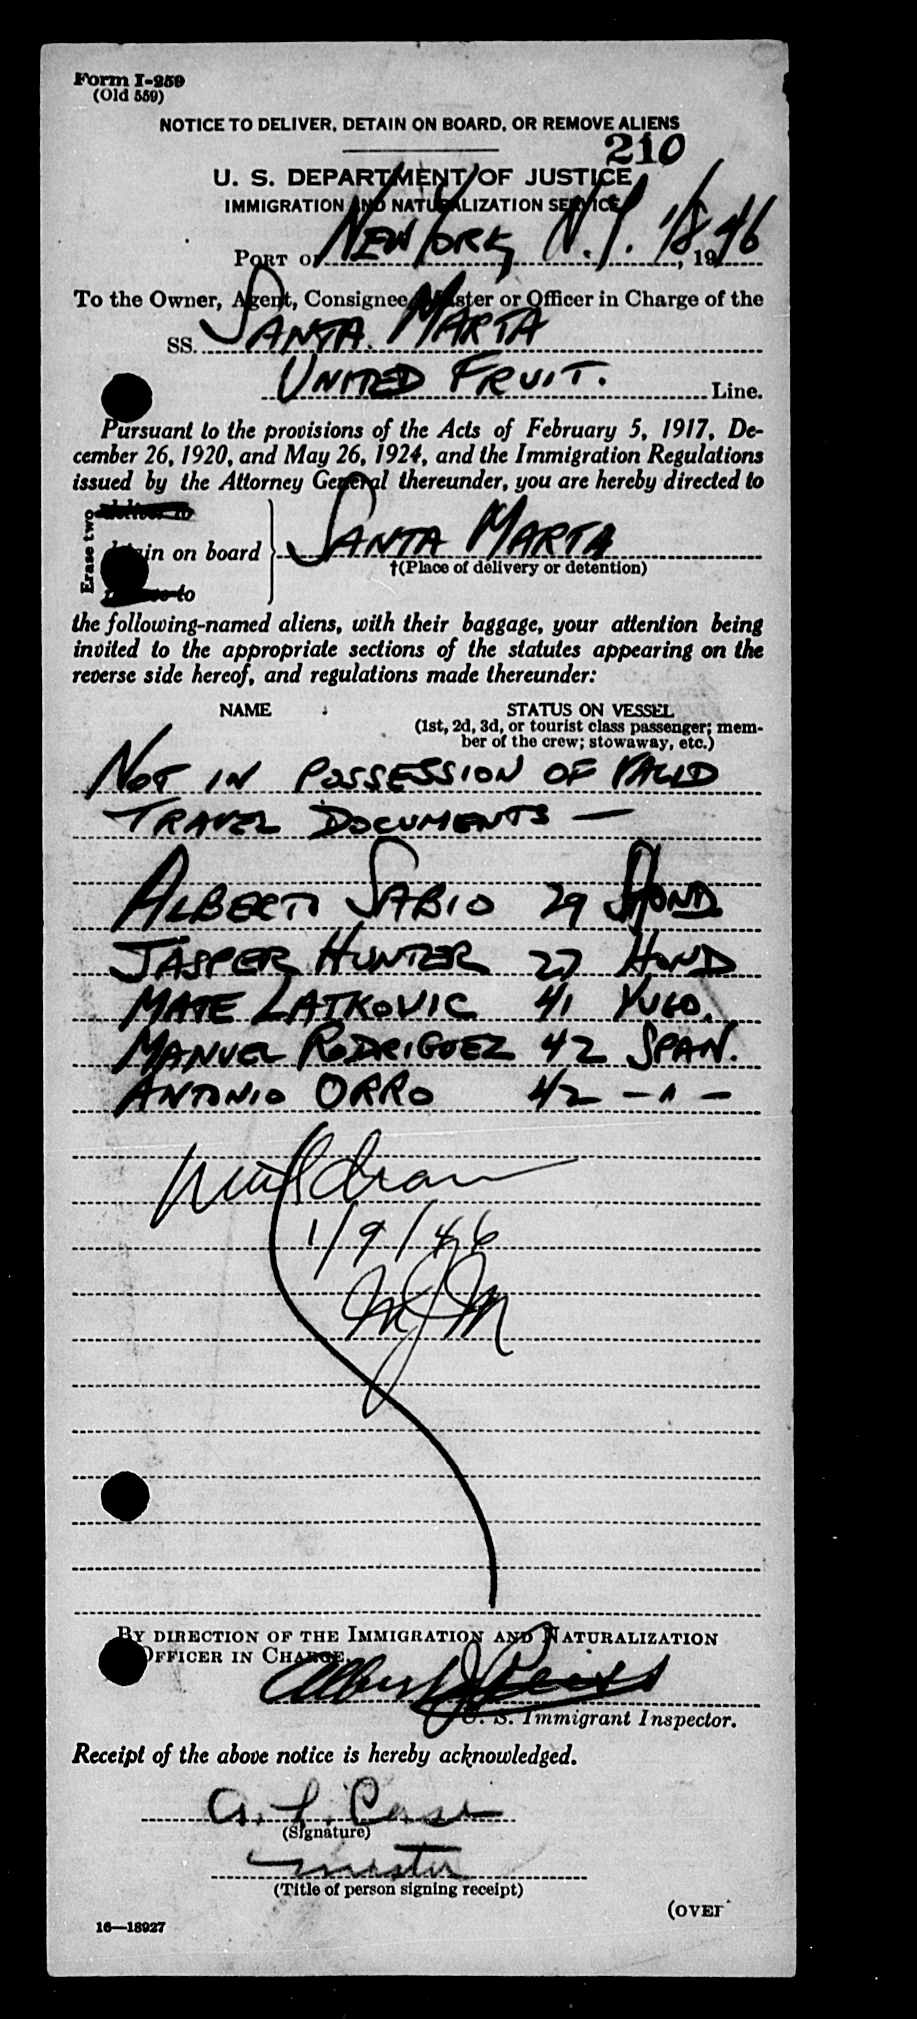 Form I-259
(Old 559)
NOTICE TO DELIVER, DETAIN ON BOARD, OR REMOVE ALIENS
210
U. S. DEPARTMENT OF JUSTICE
IMMIGRATION AND NATURALIZATION SERVICE
PORT of NEW YORK, N.Y. 1/8, 1946
To the Owner, Agent, Consignee, Master or Officer in Charge of the
SS. SANTA MARTA
UNITED FRUIT. Line.
Pursuant to the provisions of the Acts of February 5, 1917, De-
cember 26, 1920, and May 26, 1924, and the Immigration Regulations
issued by the Attorney General thereunder, you are hereby directed to
Erase two
deliver to
detain on board SANTA MARTA
†(Place of delivery or detention)
to
the following-named aliens, with their baggage, your attention being
invited to the appropriate sections of the statutes appearing on the
reverse side hereof, and regulations made thereunder:
NAME STATUS ON VESSEL
(1st, 2d, 3d, or tourist class passenger; mem-
ber of the crew; stowaway, etc.)
NOT IN POSSESSION OF VALID
TRAVEL DOCUMENTS —
ALBERTO SABIO 29 HOND
JASPER HUNTER 27 HOND
MATE LATKOVIC 41 YUGO.
MANUEL RODRIGUEZ 42 SPAN.
ANTONIO ORRO 42 — " —
Withdrawn
1/9/46
BY DIRECTION OF THE IMMIGRATION AND NATURALIZATION
OFFICER IN CHARGE.
Albert J.
U. S. Immigrant Inspector.
Receipt of the above notice is hereby acknowledged.
(Signature)
master
(Title of person signing receipt)
(OVER
16—18927